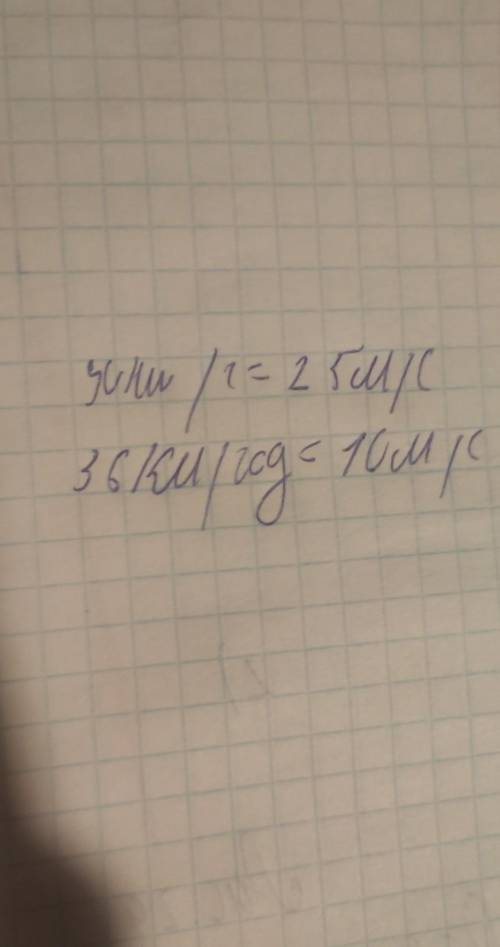 90км/г = 25м/с
36км/год = 10м/с